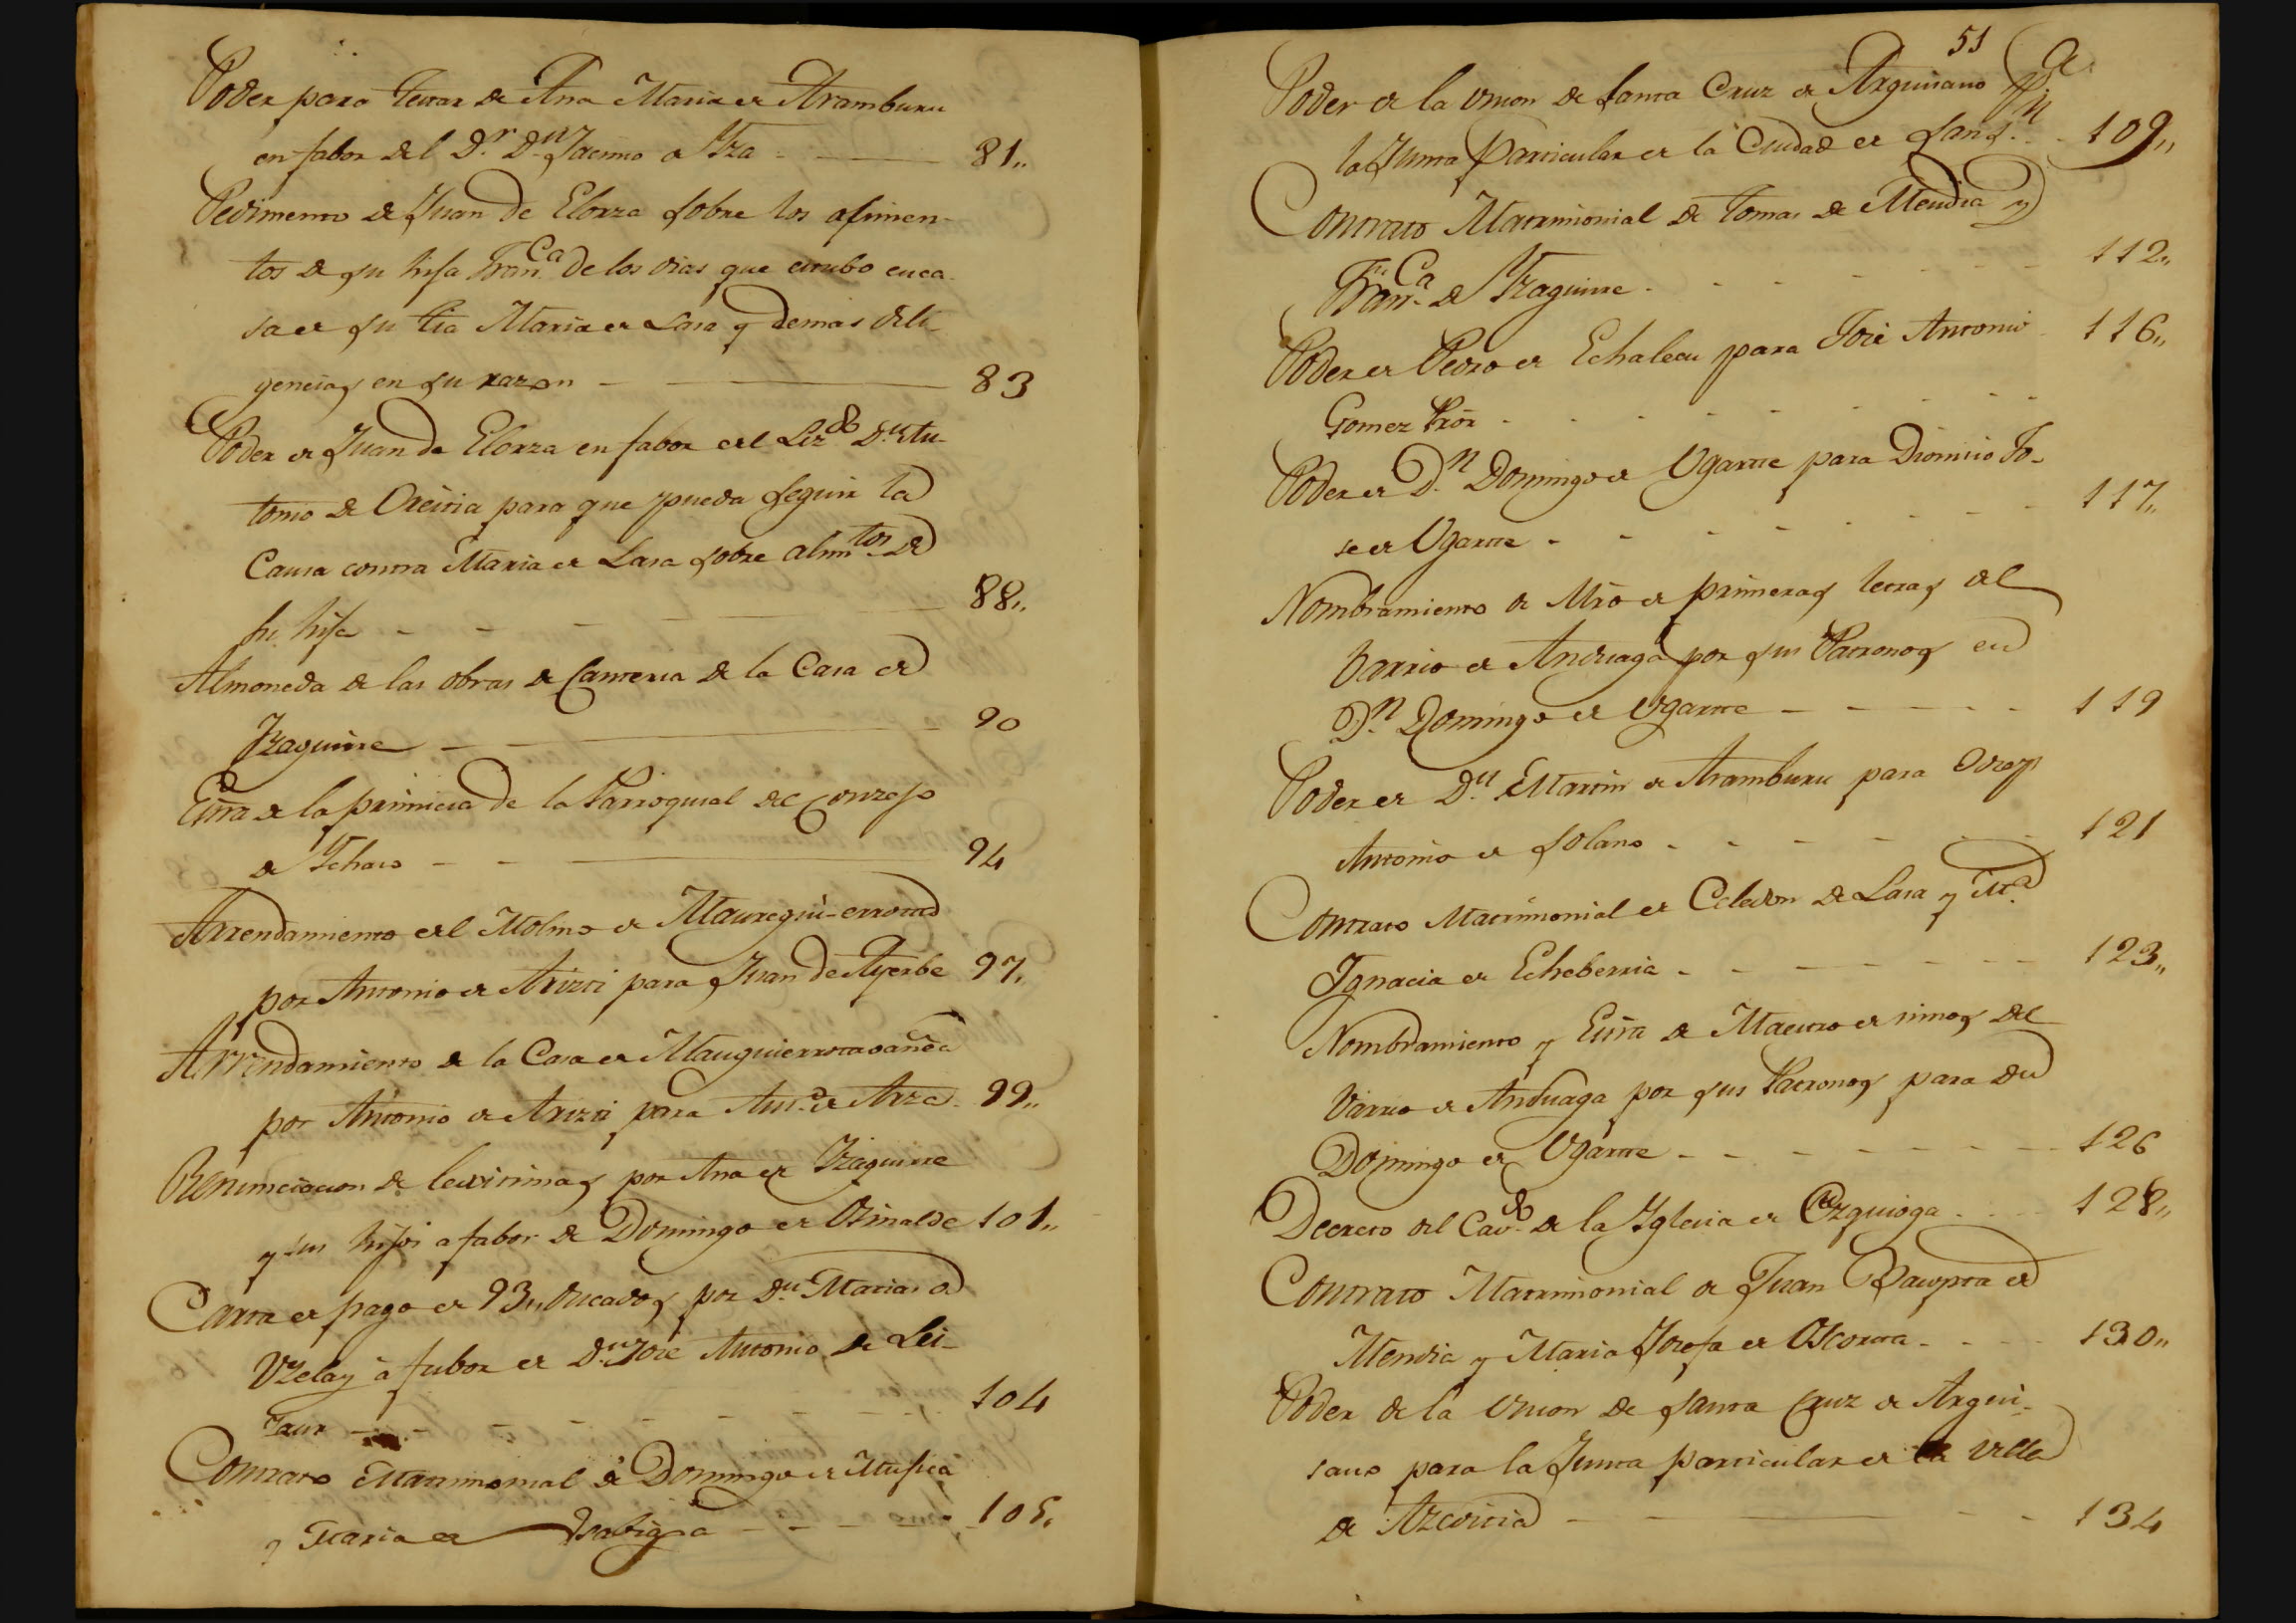 Poder para Testar de Ana Maria de Aramburu
en fabor del D.r D.n Jacinto de Yza - 81,,
Pedimento de Juan de Elorza sobre los alimen-
tos de su hija Fran.ca de los dias que estubo en ca
sa de su tia Maria de Lasa y demas dili-
gencias en su razon - 83
Poder de Juan de Elorza en fabor del Liz.do D.n
tonio de para que pueda seguir la
Causa contra Maria de Lasa sobre alim.tos de
su hija - 88,,
Almoneda de las obras de Canteria de la Casa de
Yzaguirre - 90
Esrra de la primicia de la Parroquial del Conzejo
de Ychaso - 94
Arrendamiento del Molino de Mauregui-errota
por Antonio de Arizti para Juan de Ayerbe 97,,
Arrendamiento de la Casa de
por Antonio de Arizti para Ant.o de Arza - 99,,
Renunciacion de lexitimas por Ana de Yzaguirre
y sus hijos a fabor de Domingo de Osinalde 101,,
Carta de pago de 93,, ducados por D.n Matias de
Uzelay à fabor de D.n Jose Antonio de Lei-
zaur - 104
Contrato Matrimonial de Domingo de Mujica
y Maria de - 105,
51
Poder de la Union de Santa Cruz de Arguisano P.a
la Junta Particular de la Ciudad de San S.n - 109,,
Contrato Matrimonial de Tomas de Mendia y
Fran.ca de Yzaguirre - 112,,
Poder de Pedro de Echalecu para Jose Antonio 116,,
Gomez Prõr -
Poder de D.n Domingo de Ugarte para Dionisio Jo-
se de Ugarte - 117,,
Nombramiento de Mrõ de primeras letras del
barrio de Anduaga por sus Patronos en
D.n Domingo de Ugarte - 119
Poder de D.n Martin de Aramburu para Diego
Antonio de Solano - 121
Contrato Matrimonial de Celedon de Lasa y M.a
Ignacia de Echeberria - 123,,
Nombramiento y Esrra de Maestro de niños del
Varrio de Anduaga por sus Patronos para Dn
Domingo de Ugarte - 126
Decreto del Cav.do de la Yglesia de Ezquioga - 128,,
Contrato Matrimonial de Juan Bautista de
Mendia y Maria Josefa de Oscorta - 130,,
Poder de la Union de Santa Cruz de Argui-
sano para la Junta particular de la Villa
de Azcoitia - 134